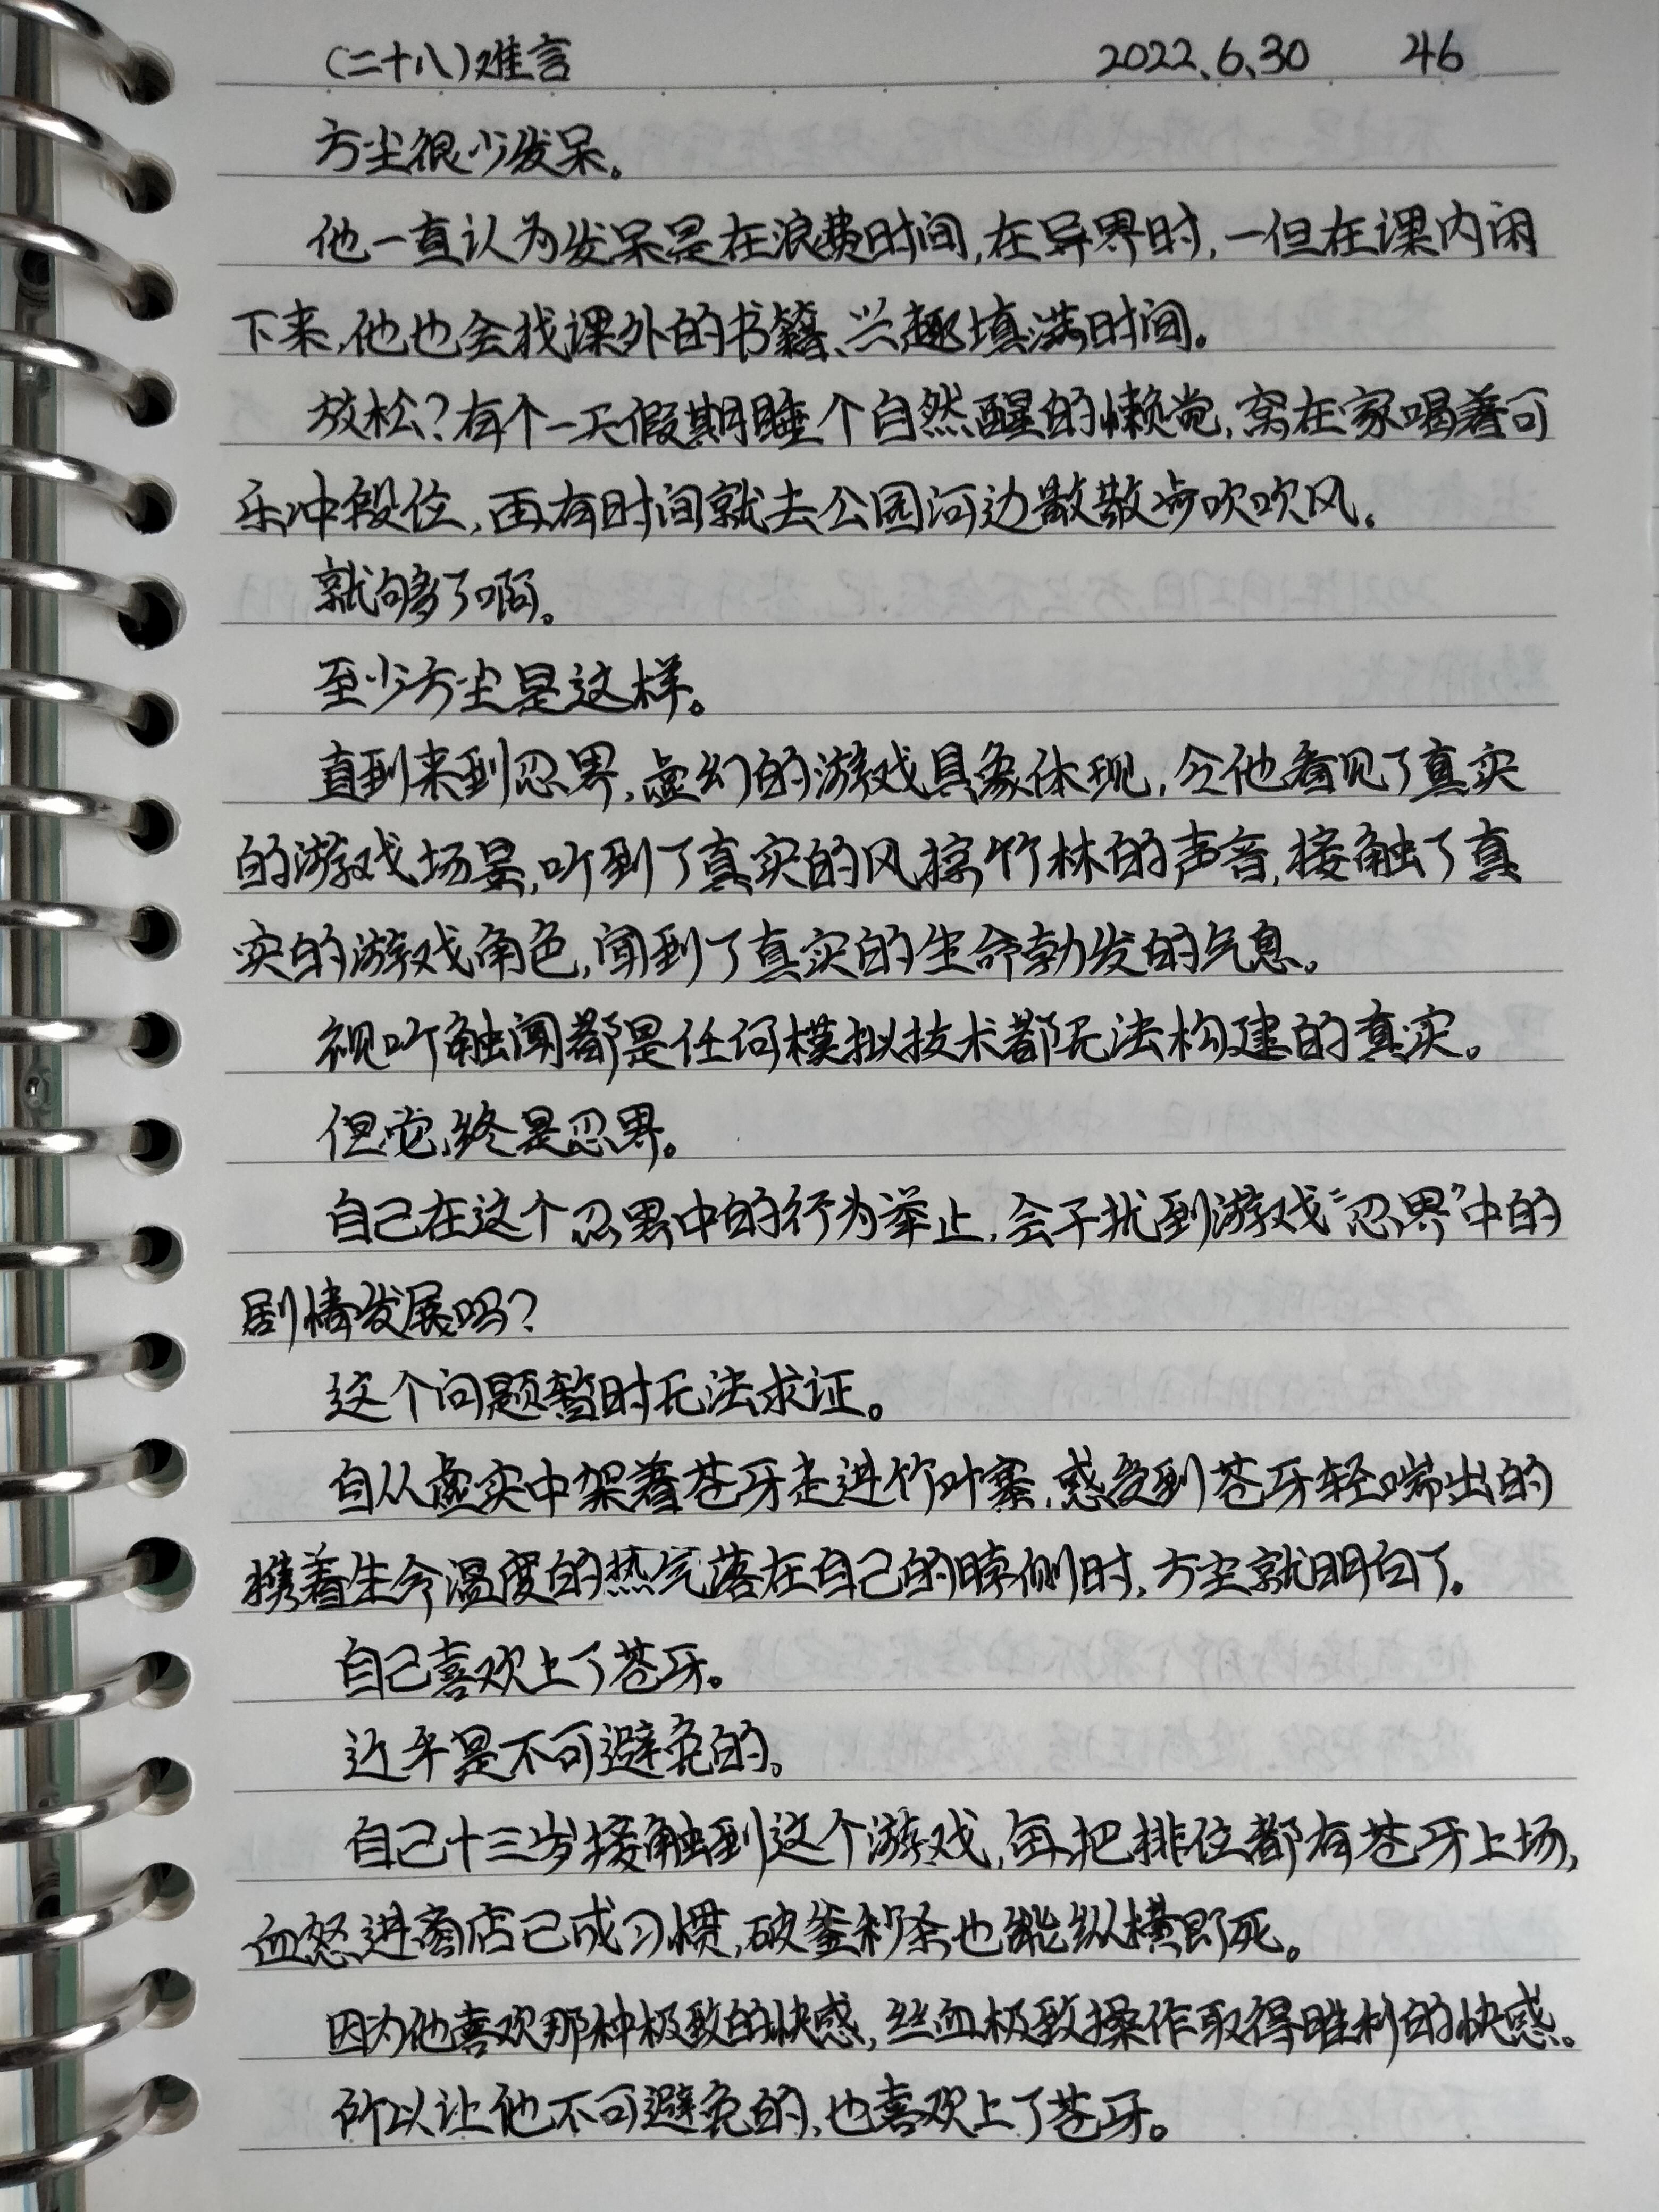 (二十八)难言 2022.6.30 46
方尘很少发呆。
他一直认为发呆是在浪费时间,在异界时,一但在课内闲
下来,他也会找课外的书籍、兴趣填满时间。
放松?有个一天假期睡个自然醒的懒觉,窝在家喝着可
乐冲段位,再有时间就去公园河边散散步吹吹风。
就够了啊。
至少方尘是这样。
直到来到忍界,虚幻的游戏具象体现,令他看见了真实
的游戏场景,听到了真实的风掠竹林的声音,接触了真
实的游戏角色,闻到了真实的生命勃发的气息。
视听触闻都是任何模拟技术都无法构建的真实。
但它终是忍界。
自己在这个忍界中的行为举止,会干扰到游戏“忍界”中的
剧情发展吗?
这个问题暂时无法求证。
自从虚实中架着苍牙走进竹叶寨,感受到苍牙轻喘出的
携着生命温度的热气落在自己的脖侧时,方尘就明白了。
自己喜欢上了苍牙。
近乎是不可避免的。
自己十三岁接触到这个游戏,每把排位都有苍牙上场,
血怒进商店已成习惯,破釜秒杀也能纵横即死。
因为他喜欢那种极致的快感,丝血极致操作取得胜利的快感。
所以让他不可避免的,也喜欢上了苍牙。